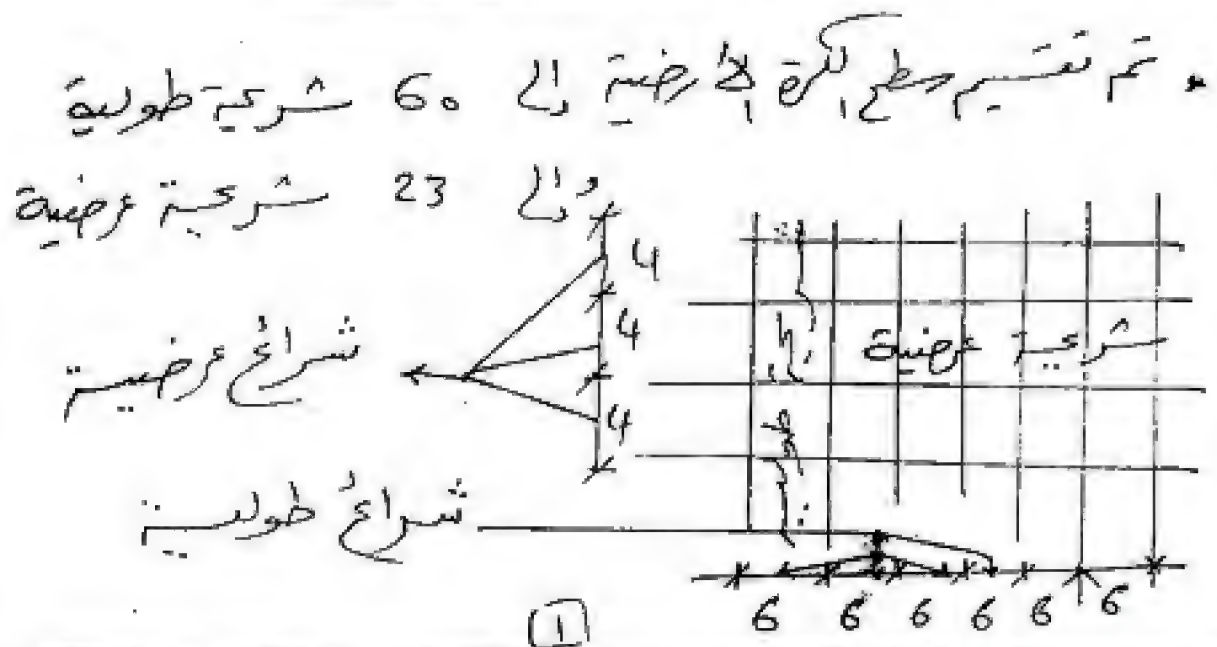 . تم تقسيم سطح الكرة الأرضية إلى 60 شريحة طولية
وإلى 23 شريحة عرضية
4
4
4
شريحة عرضية
شرائح عرضية
شريحة طولية
شرائح طولية
6 6 6 6 6 6
1